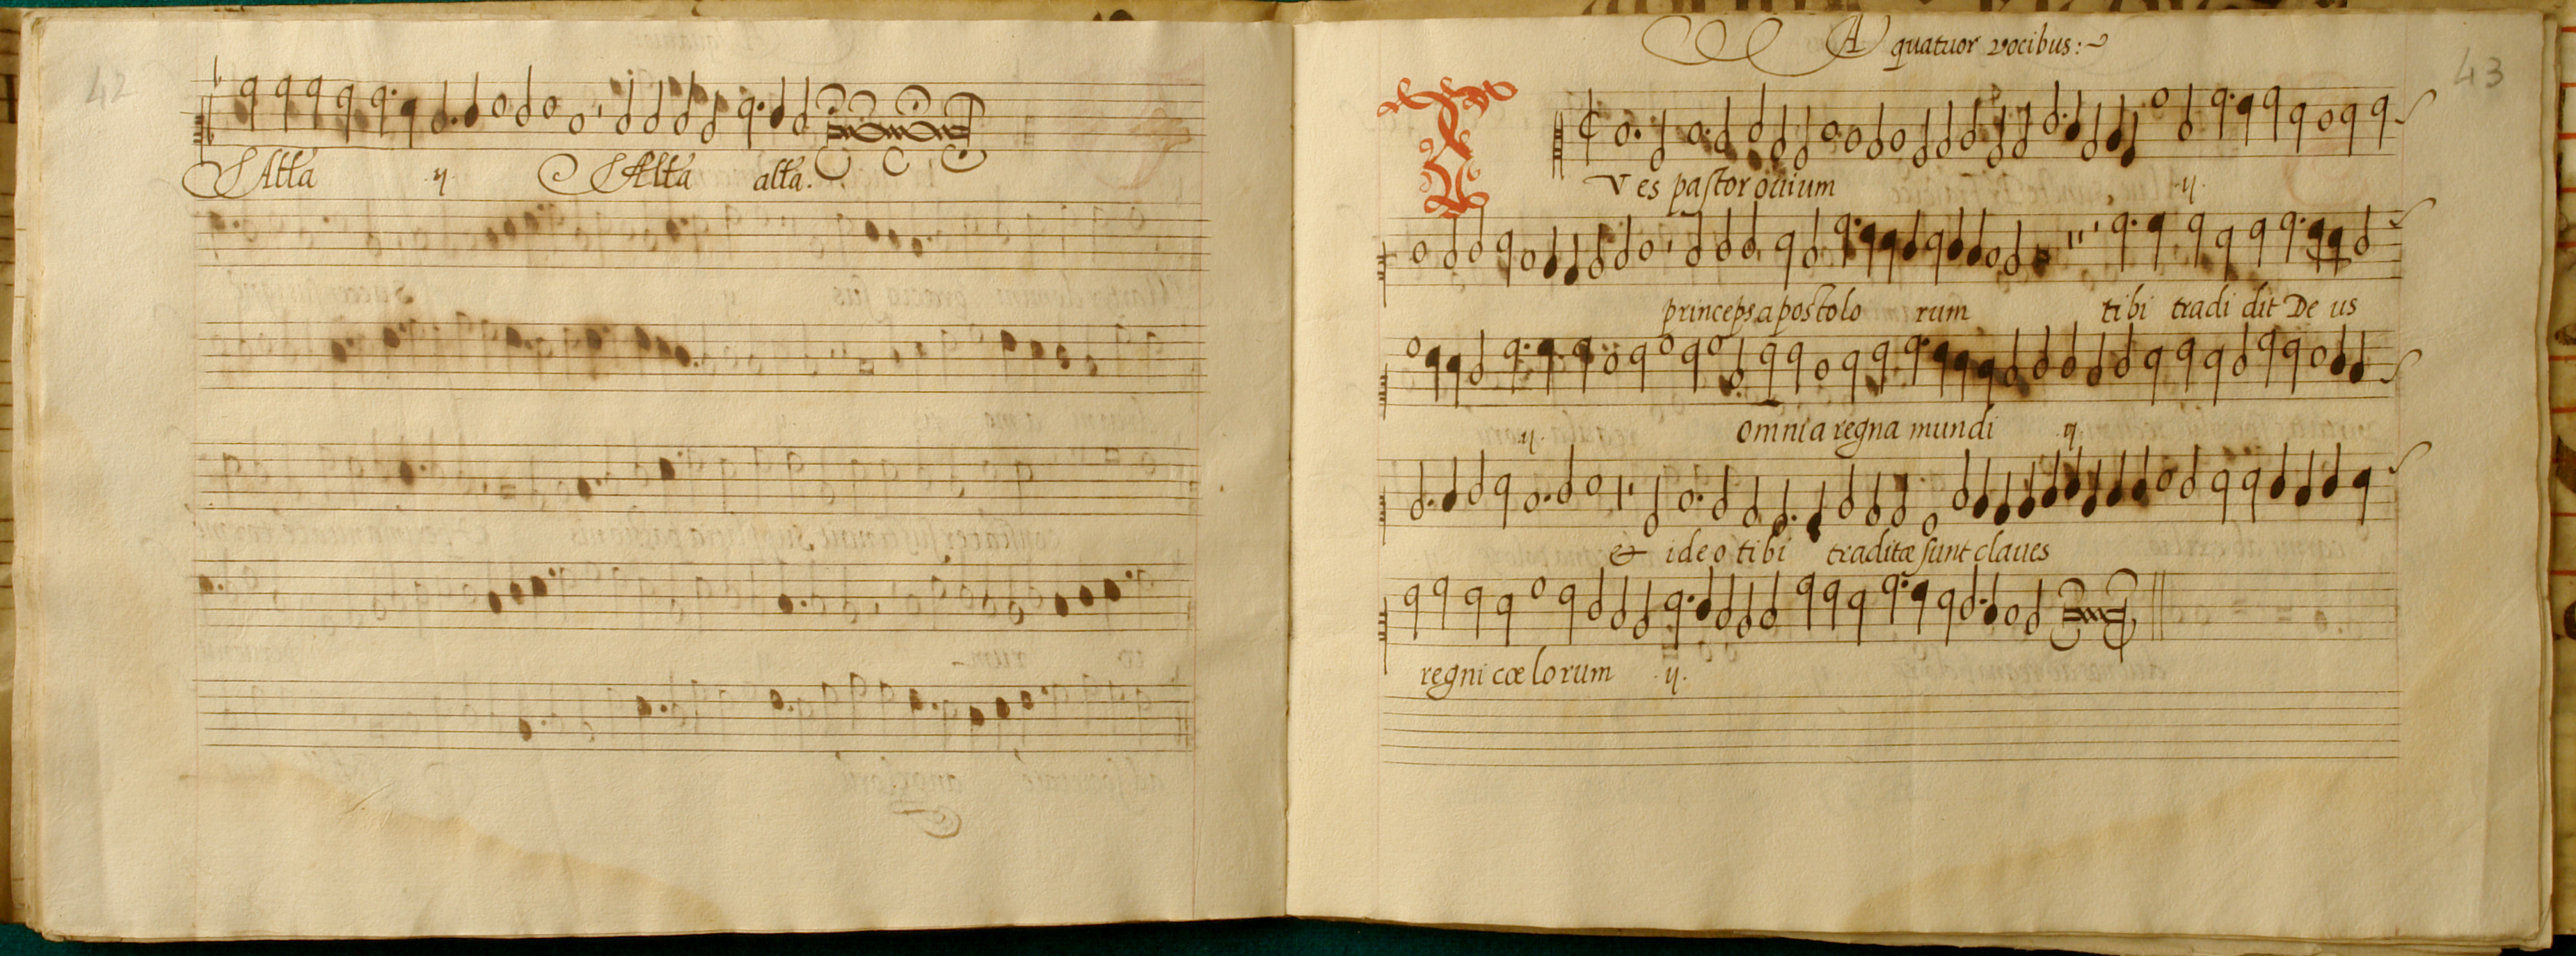 42
Alla .ij. Alla alla.
A quatuor vocibus:
43
T
V es pastor ovium .ij.
princeps apostolo rum tibi tradi dit De us
.ij. omnia regna mundi .ij.
& ideo tibi traditæ sunt claves
regni cœlorum .ij.